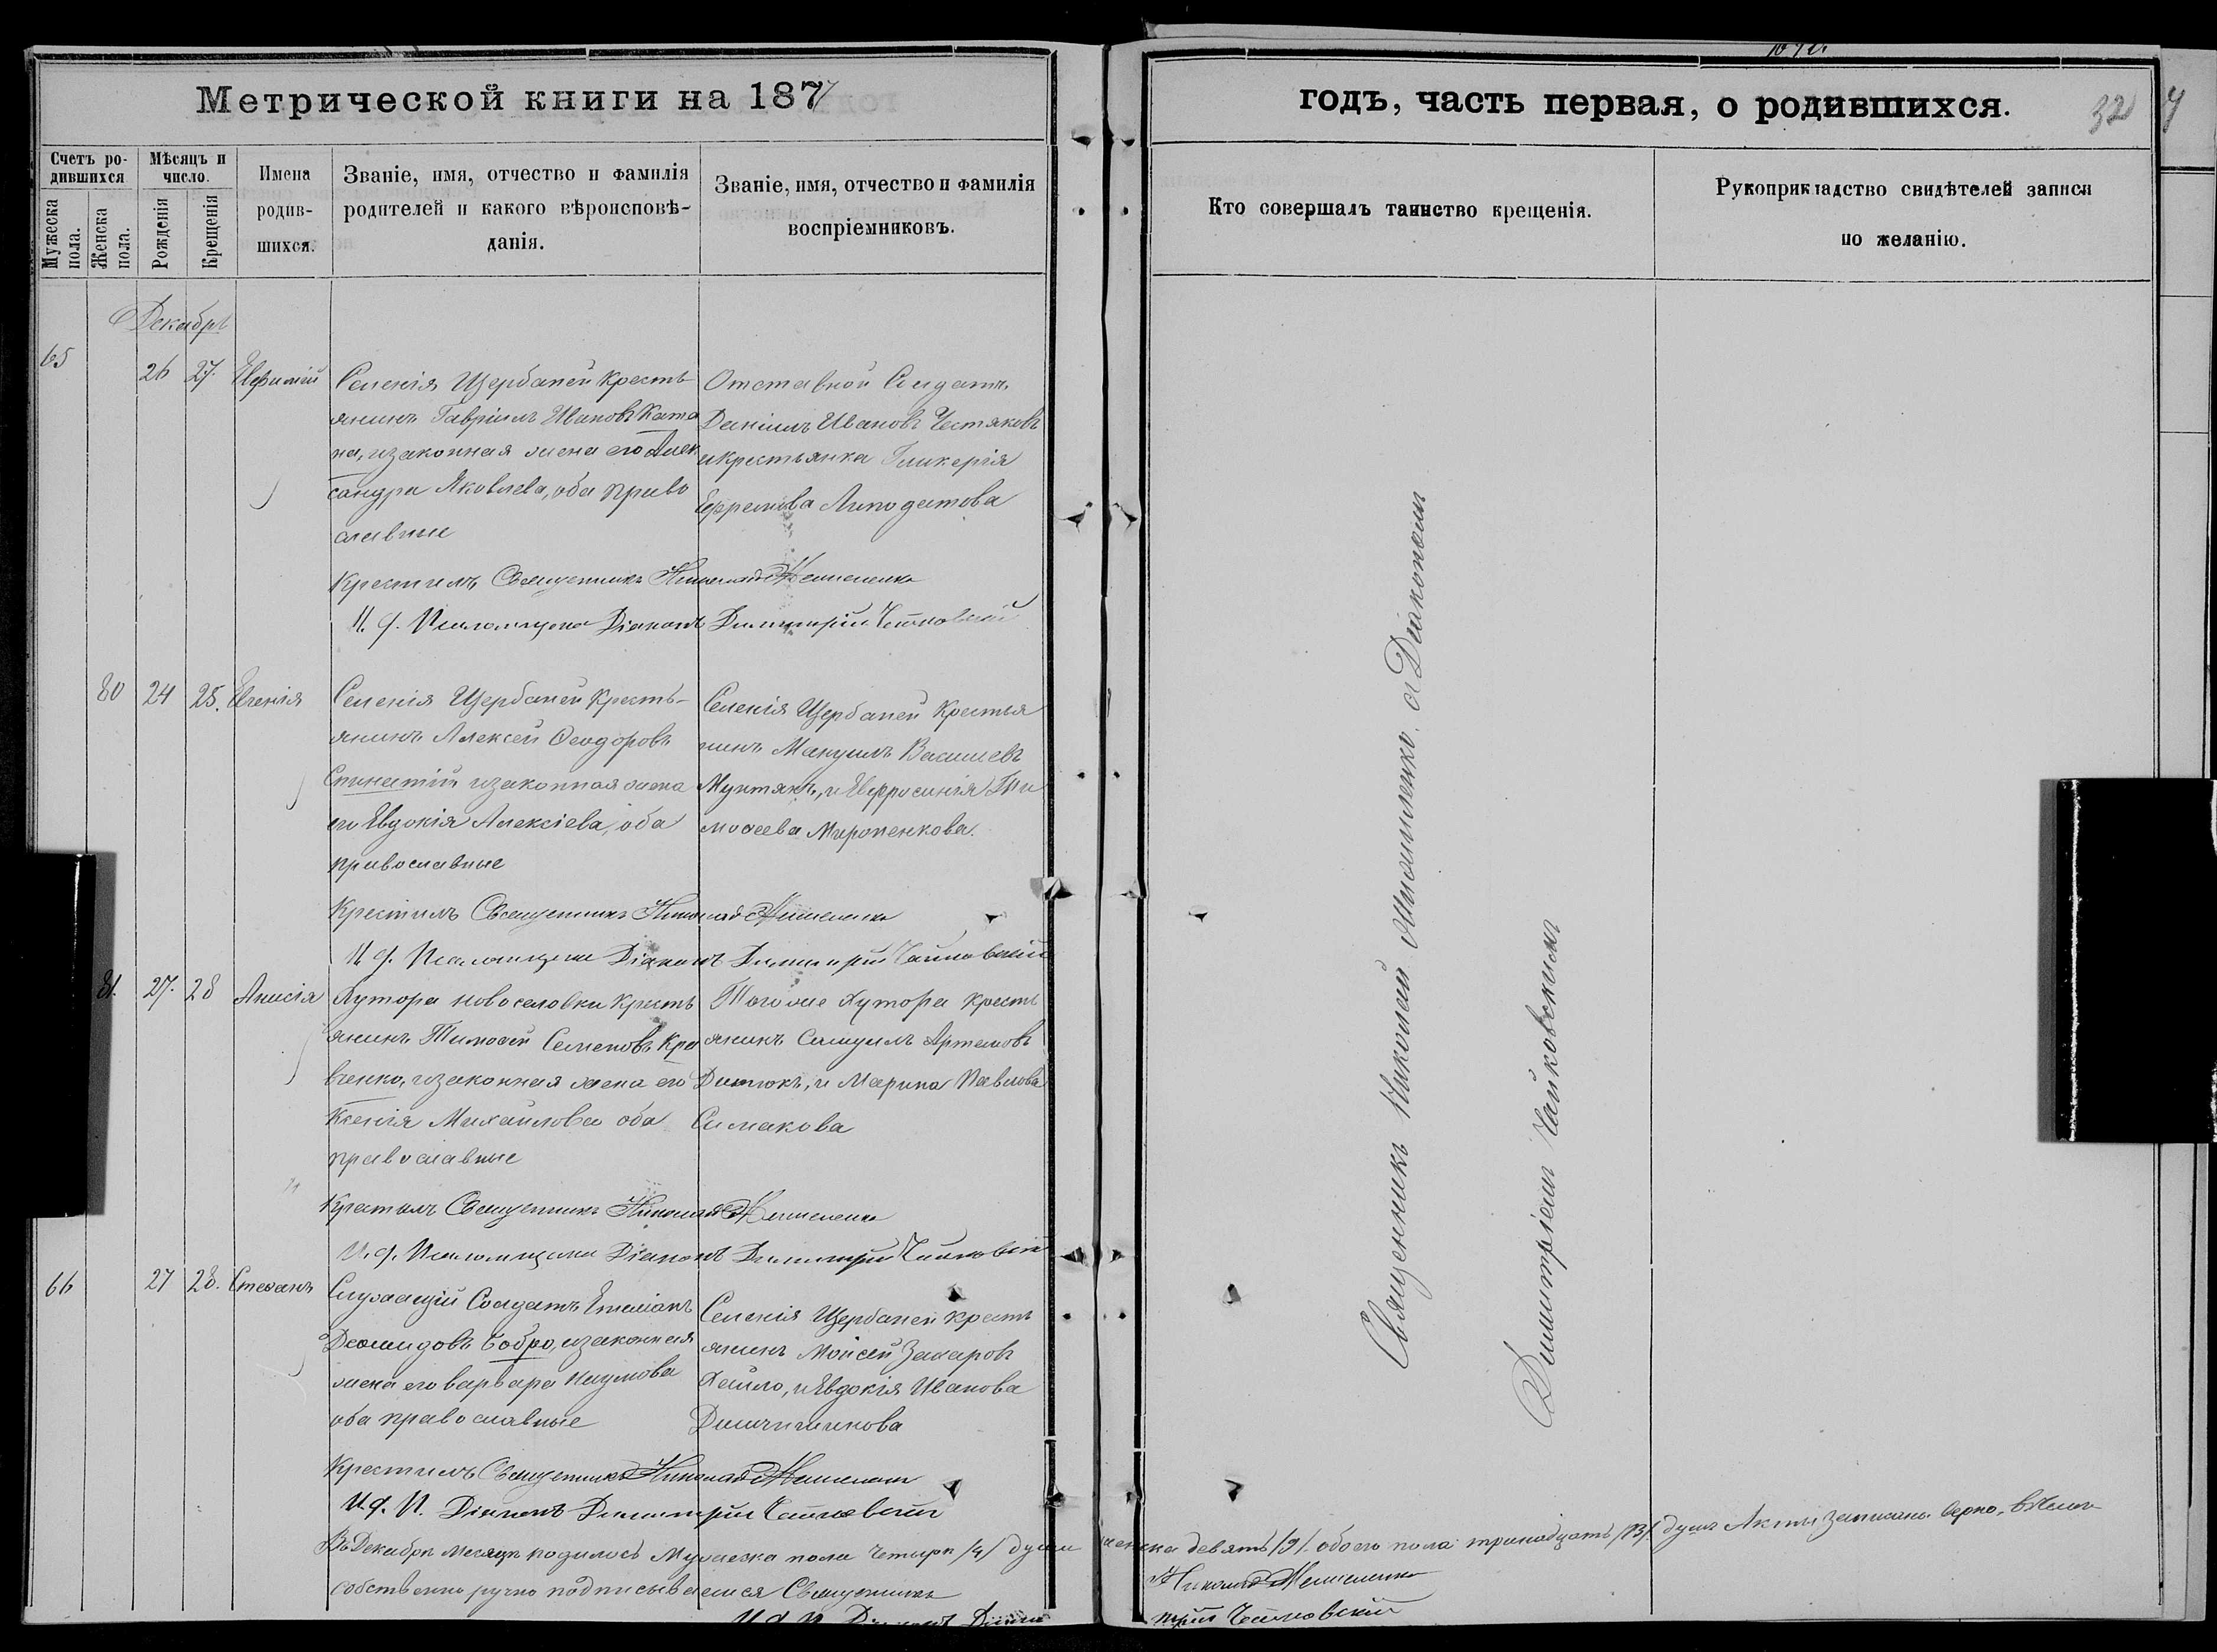 Метрической книги на 1877
годъ, часть первая, о родившихся.
32
Счетъ ро-
дившихся
Мѣсяцъ и
число.
Мужеска
пола.
Женска
пола.
Рожденія
Крещенія
Имена
родив-
шихся.
Званіе, имя, отчество и фамилія
родителей и какого вѣроисповѣ-
данія.
Званіе, имя, отчество и фамилія
воспріемниковъ.
Кто совершалъ таинство крещенія.
Рукоприкладство свидѣтелей записи
по желанію.
Декабрь
65
26 27. Евфимій
Селенія Щербаней кресть-
янинъ Гавріилъ Ивановъ Ката
на, и законная жена его Алек
сандра Яковлева, оба право
славные
Отставной Солдатъ
Даніилъ Ивановъ Честяковъ
и крестьянка Гликерія
Ефремова Липодатова
Крестилъ Священникъ Николай
И. д. Псаломщика Діаконъ Димитрій Чайковскій
80 24 25. Евгенія
Селенія Щербаней кресть-
янинъ Алексей Ѳеодоровъ
Спинатій и законная жена
его Евдокія Алексіева, оба
православные
Селенія Щербаней крестья
нинъ Мануилъ Васильевъ
Мунтянъ, и Евфросинія Ти
моѳеева Мироненкова.
Крестилъ Священникъ Николай
И. д. Псаломщика Діаконъ Димитрій Чайковскій
81. 27. 28 Анисія
Хутора новоселовки кресть
янинъ Тимоѳей Семеновъ Кра
вченко, и законная жена его
Ксенія Михайлова оба
православные
Того же Хутора кресть
янинъ Самуилъ Артемовъ
Дитюкъ, и Марина Павлова
Симакова
Крестилъ Священникъ Николай
И. д. Псаломщика Діаконъ Димитрій Чайковскій
66 27 28. Стефанъ
Служащій Солдатъ Емеліанъ
Деомидовъ Бобро, и законная
жена его Варвара Наумова
оба православные
Селенія Щербаней кресть
янинъ Моисей Захаровъ
Хайло, и Евдокія Иванова
Крестилъ Священникъ Николай
И. д. П. Діаконъ Димитрій Чайковскій
Священникъ Николай с Діакономъ
Димитріемъ Чайковскимъ
Въ Декабрѣ месяцѣ родилось Мужеска пола четыри /4/ души женска девять /9/. обоего пола тринадцать /13/. душъ Акты записаны верно, въ чемъ
собственно ручно подписываемся Священникъ Николай
И. д. П. Діаконъ Димитрій Чайковскій